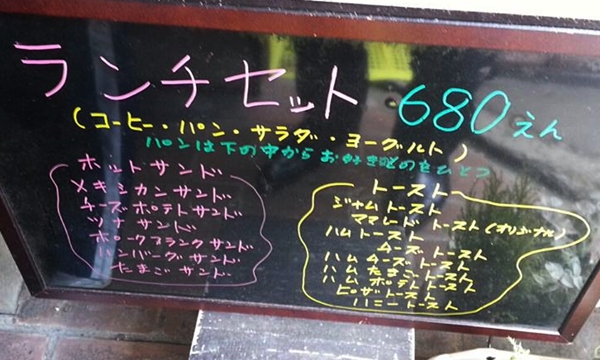 ランチセット 680えん
(コーヒー・パン・サラダ・ヨーグルト)
パンは下の中からお好きなものをひとつ
ホットサンド
メキシカンサンド
チーズポテトサンド
ツナサンド
ポークフランクサンド
ハンバーグサンド
たまごサンド
トースト
ジャムトースト
ママレードトースト(オリジナル)
ハムトースト
チーズトースト
ハムチーズトースト
ハムたまごトースト
ハムポテトトースト
ピザトースト
ハニートースト